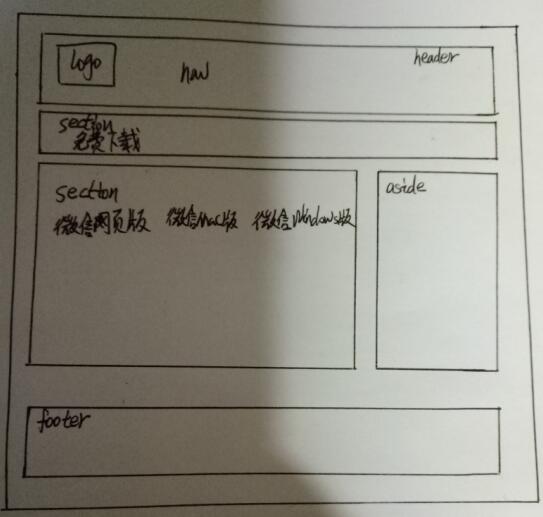 logo nav header
section
免费下载
section
微信网页版 微信Mac版 微信Windows版
aside
footer